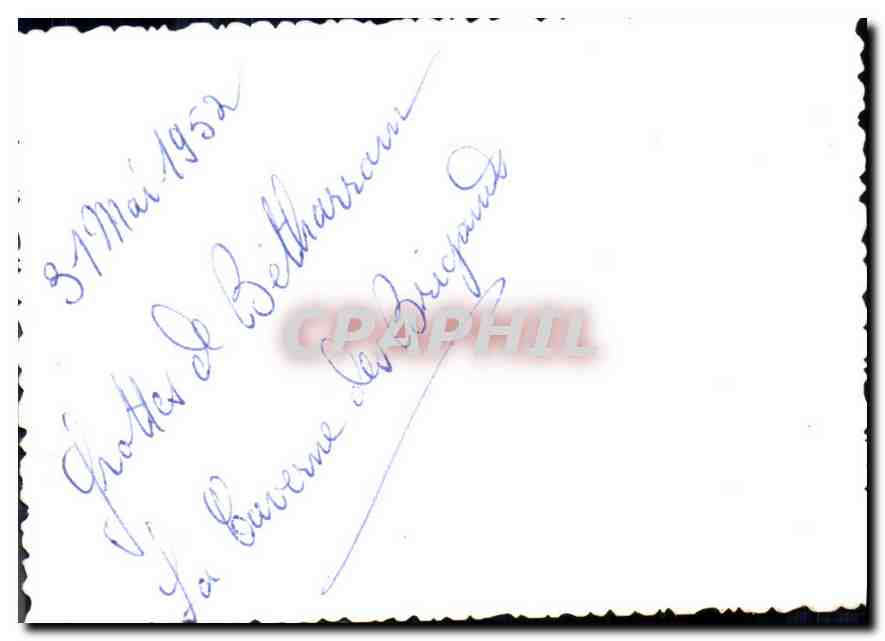 31 Mai 1952
Grottes de Bétharram
La Caverne des Brigands
CPAPHIL